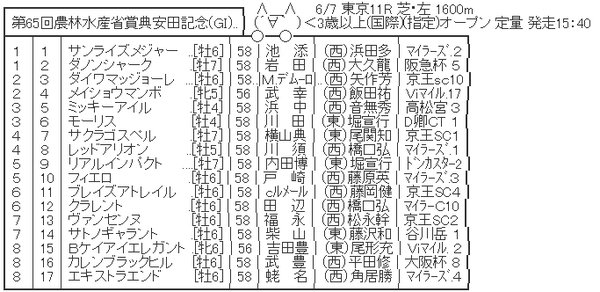 第65回農林水産省賞典安田記念(GⅠ).. (´∀｀) 6/7 東京11R 芝・左 1600m
<3歳以上(国際)(指定)オープン 定量 発走15:40
1 1 サンライズメジャー ..[牡6] 58 池 添 (西)浜田多 マイラーズ.2
1 2 ダノンシャーク [牡7] 58 岩 田 (西)大久龍 阪急杯 5
2 3 ダイワマッジョーレ ..[牡6] 58 M.デムーロ (西)矢作芳 京王sc10
2 4 メイショウマンボ [牝5] 56 武 幸 (西)飯田祐 Viマイル.17
3 5 ミッキーアイル [牡4] 58 浜 中 (西)音無秀 高松宮 3
3 6 モーリス [牡4] 58 川 田 (東)堀宣行 D卿CT 1
4 7 サクラゴスペル [牡7] 58 横山典 (東)尾関知 京王SC1
4 8 レッドアリオン [牡5] 58 川 須 (西)橋口弘 マイラーズ.1
5 9 リアルインパクト [牡7] 58 内田博 (東)堀宣行 ドンカスター2
5 10 フィエロ [牡6] 58 戸 崎 (西)藤原英 マイラーズ3
6 11 ブレイズアトレイル [牡6] 58 c.ルメール (西)藤岡健 京王SC4
6 12 クラレント [牡6] 58 田 辺 (西)橋口弘 マイラーC10
7 13 ヴァンセンヌ [牡6] 58 福 永 (西)松永幹 京王SC2
7 14 サトノギャラント [牡6] 58 柴 山 (東)藤沢和 谷川岳 1
8 15 Bケイアイエレガント [牝6] 56 吉田豊 (東)尾形充 Viマイル.2
8 16 カレンブラックヒル [牡6] 58 武 豊 (西)平田修 大阪杯 8
8 17 エキストラエンド [牡6] 58 蛯 名 (西)角居勝 マイラーズ.4